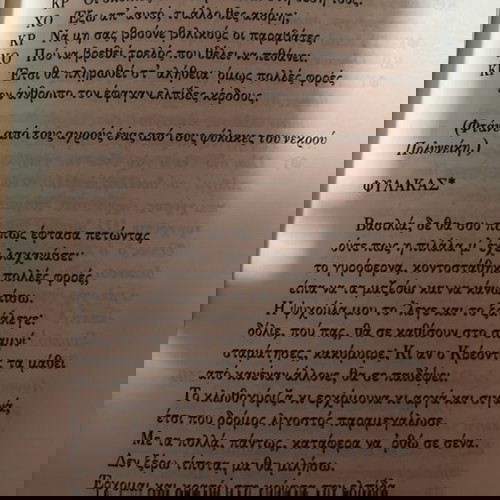 ΚΡ
ΧΟ Έξω απ' αυτή, τι άλλο θες ακόμη;
ΚΡ Να μη σας βρούνε βολικούς οι παραβάτες.
ΧΟ Πού να βρεθεί τρελός που θέλει να πεθάνει.
ΚΡ Έτσι θα πληρωθεί στ' αλήθεια· όμως πολλές φορές
τον άνθρωπο τον έφαγαν ελπίδες κέρδους.
από τους αγρούς ένας από τους φύλακες του νεκρού
Πολυνείκη.)
ΦΥΛΑΚΑΣ*
Βασιλιά, δε θα σου πω
πως έφτασα πετώντας
ούτε πως η πιλάλα μ' έχει
λαχανιάσει·
το γυρόφερνα, κοντοστάθηκα
πολλές φορές
Η ψυχούλα μου το 'λεγε και το ξα-
νάλεγε:
δόλιε, πού πας, θα σε καθίσουν στο σκαμνί·
σταμάτησες, κακόμοιρε; Κι αν ο Κρέοντας
τα μάθει
από κανέναν άλλονε, θα σε παιδέψει·
Το κλωθογύριζα κι ερχόμουνα κι αργά και σιγά,
έτσι που δρόμος λιγοστός παραμεγάλωσε.
Με τα πολλά, πάντως, κατάφερα να 'ρθω σε σένα.
Δεν ξέρω τίποτα, μα θα μιλήσω.
Έρχομαι και